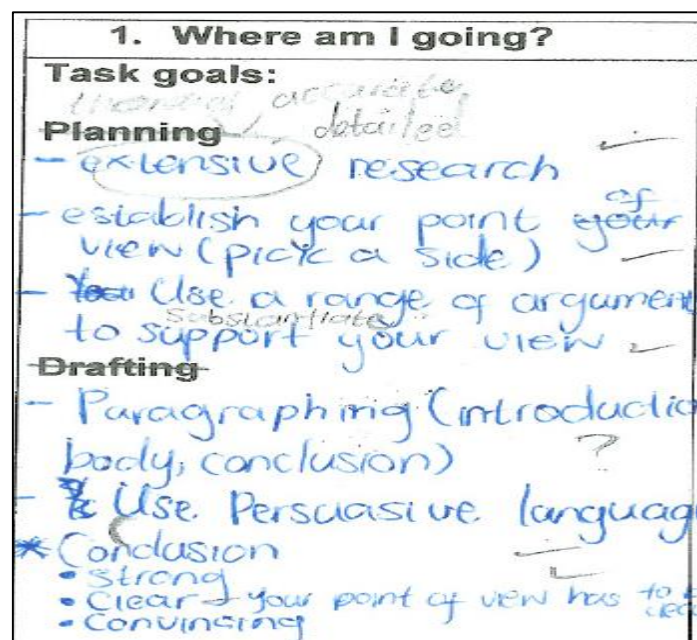 1. Where am I going?
Task goals:
accurate,
Planning detailed
- extensive research
- establish your point of your
view (pick a side)
- You Use a range of argument
Substantiate
to support your view
Drafting
- Paragraphing (introductio
body, conclusion) ?
- Use Persuasive languag
* Conclusion
• Strong
• Clear → your point of view has to
• Convincing